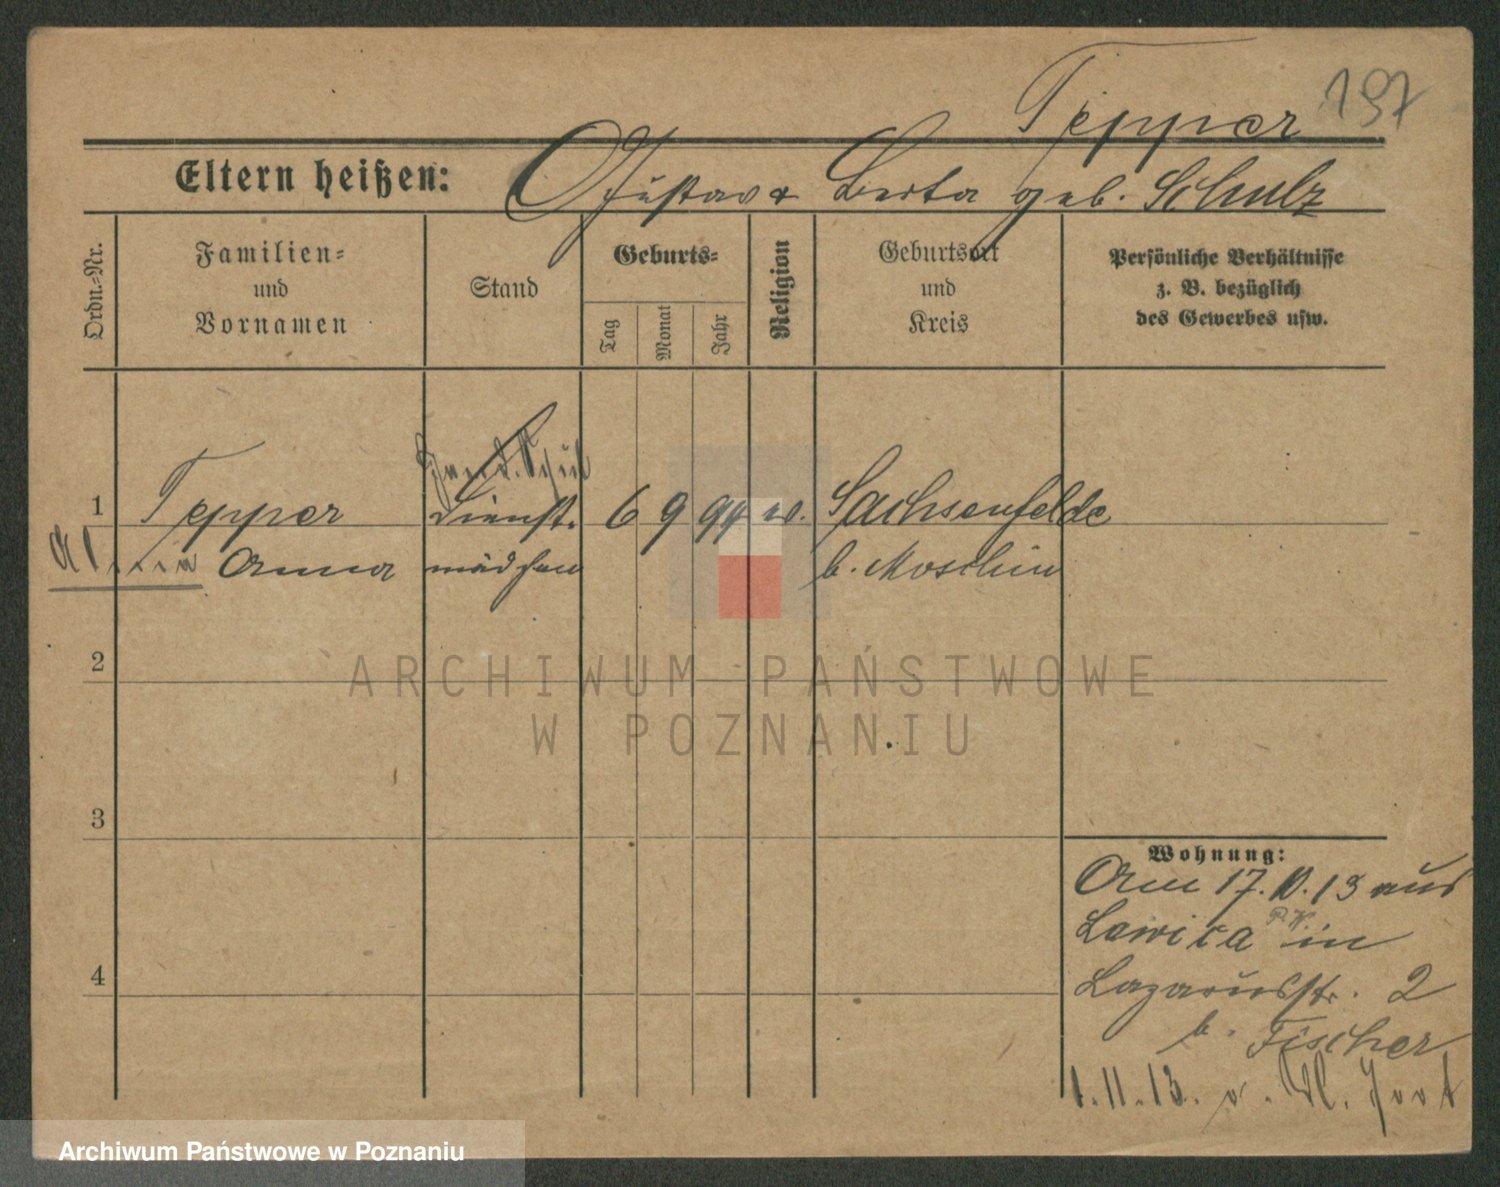 Tepper 197
Eltern heißen: Gustav & Berta geb. Schulz
Ordn.-Nr.
Familien-
und
Vornamen
Stand
Geburts-
Tag
Monat
Jahr
Religion
Geburtsort
und
Kreis
Persönliche Verhältnisse
z. B. bezüglich
des Gewerbes usw.
1 Tepper Dienst- 6 9 94 ev. Sachsenfelde
Anna mädchen b. Moschin
2
ARCHIWUM PAŃSTWOWE
W POZNANIU
3
Wohnung:
Am 17. 10. 13 aus
Lawica P.W. in
Lazarusstr. 2
b. Fischer
4
1. 11. 13. v.
Archiwum Państwowe w Poznaniu